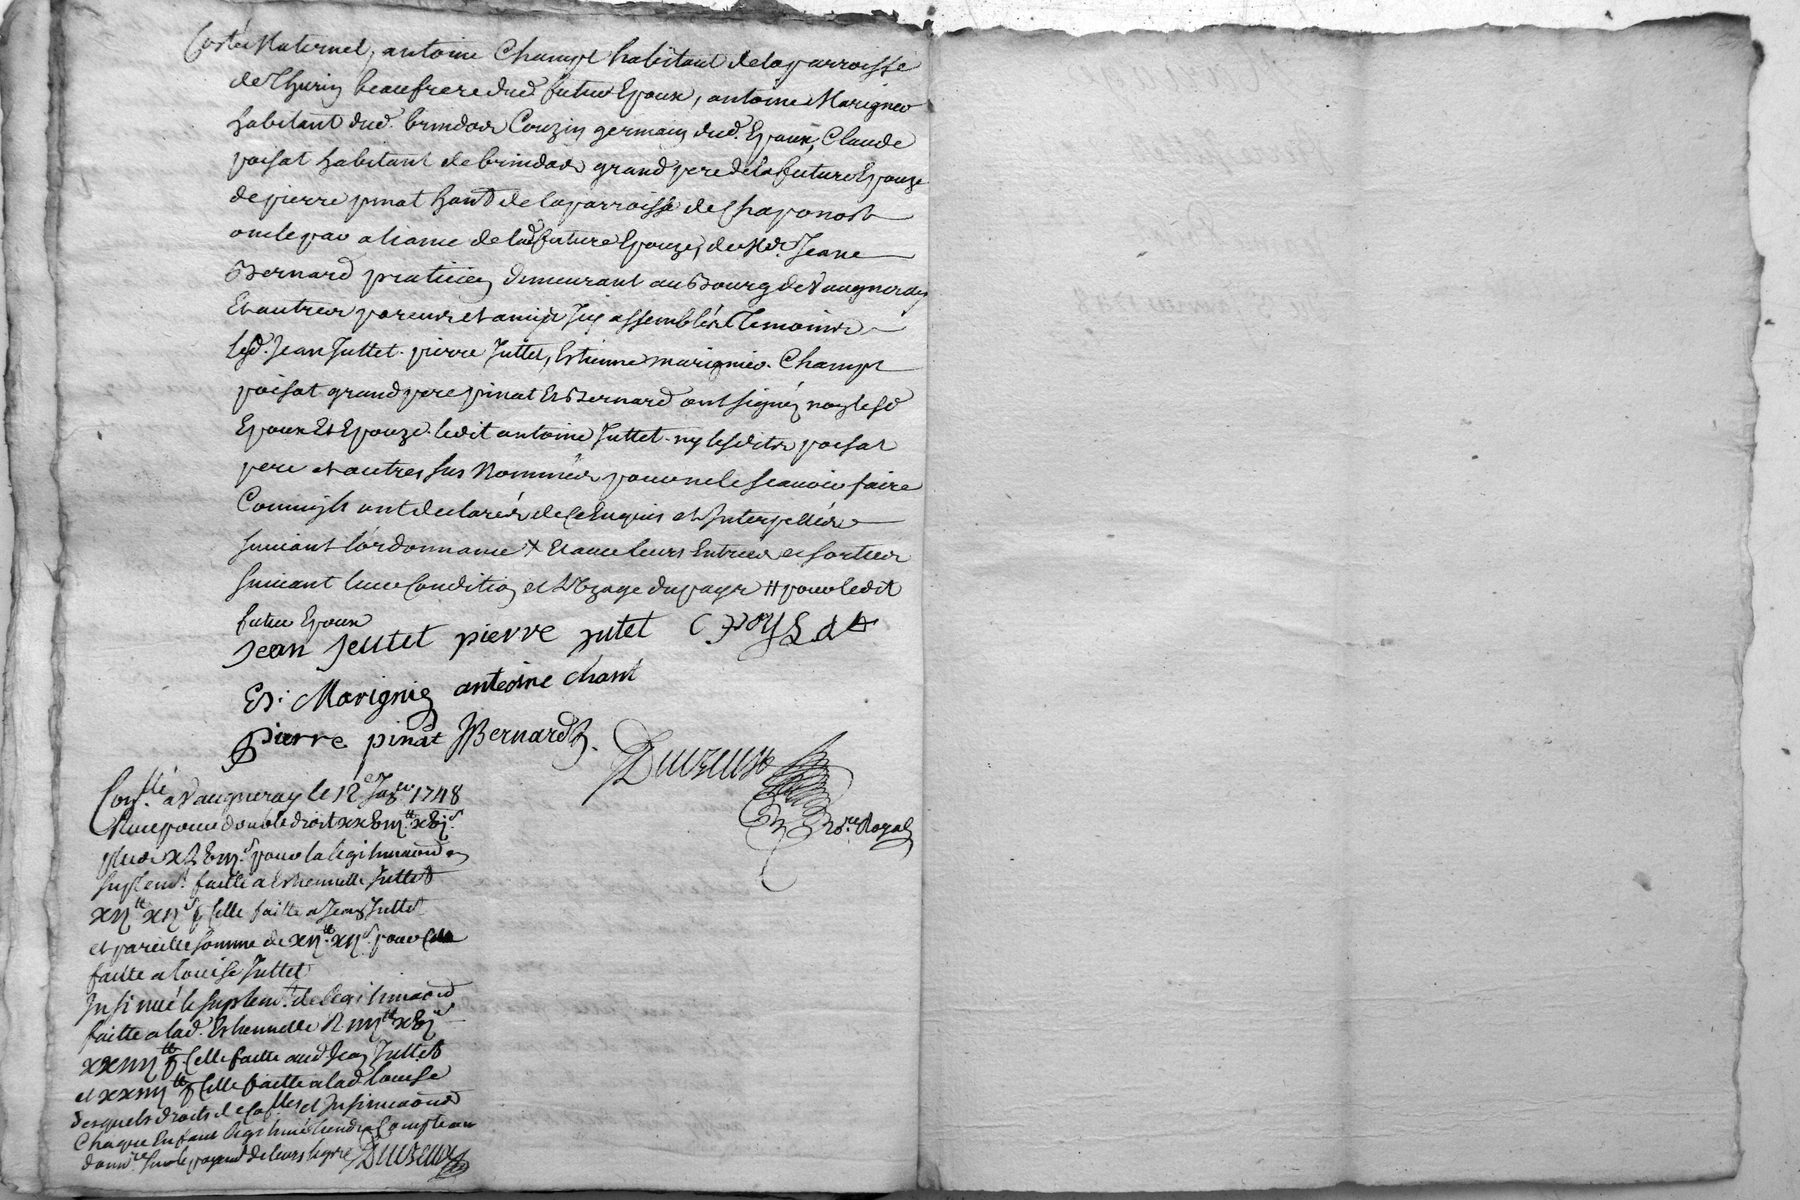 Costés Maternel, antoine Champt habitant de la parroisse
de Thurin beaufrere dud. futur Epoux, antoine Marignier
habitant dud. brindas Couzin germain dud. Epoux, Claude
poisat habitant de brindas grand pere de la future Epouze
de pierre pinat hant de la parroisse de Chaponost
oncle par aliance de lad future Epouze, de Mr. Jeane
Bernard praticien demeurant au Bourg de Vaugneray
Et autres parens et amis Icy assemblés Temoins
Lesd. Jean Juttet. pierre Juttet, Estienne marignier. Champt
poisat grand pere pinat Et Bernard ont signéz non lesd
Epoux Et Epouze. ledit antoine Juttet. ny lesdits poisat
pere et autres sus Nommés pour ne le scavoir faire
Comm'ils ont declarés de ce Enquis et Interpellés
suivant l'ordonnance + Et avec leurs Entrées et sorties
suivant leur Condition et L'Uzage du pays # pour ledit
futur Epoux
Jean Jeutet pierre jutet C POYSAt
Es. Marignie antoine chant
pierre pinat JBernard
Duvzeux
Nore. Royal
Conllé a Vaugneray le 12e. Jaer 1748
Reçu pour double droit
pour la legitimaon
suplemt. faitte a Estiennette Juttet
celle faitte a Jean Juttet
et pareille somme de pour celle
faitte a Louise Juttet
Insinué le suplemt. de legitimaon
faitte a lad. Estiennette
celle faitte aud Jean Juttet
et celle faitte a lad Louise
desquels droits de Colles et Insinuaons
Chaque Enfant legitimé tiendra Compte au
Duvzeux